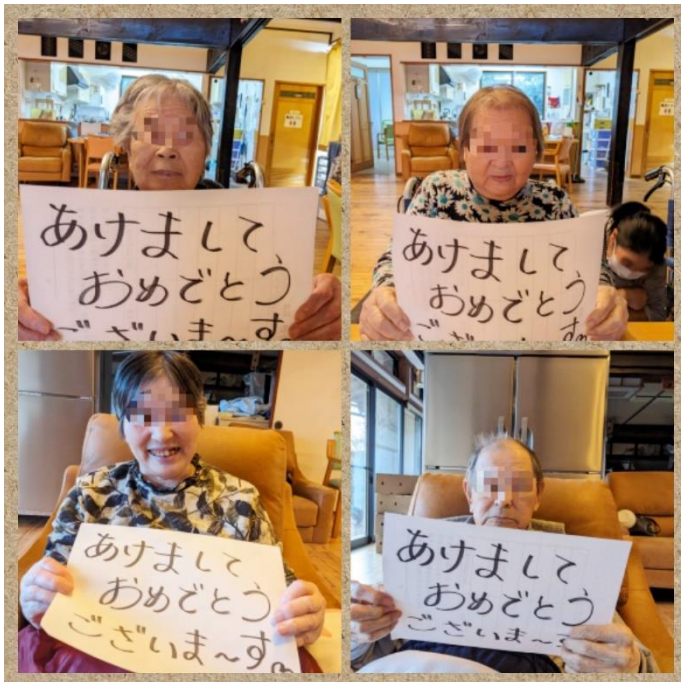 あけまして
おめでとう
ございま～す
あけまして
おめでとう
ございま～す
あけまして
おめでとう
ございま～す
あけまして
おめでとう
ございま～